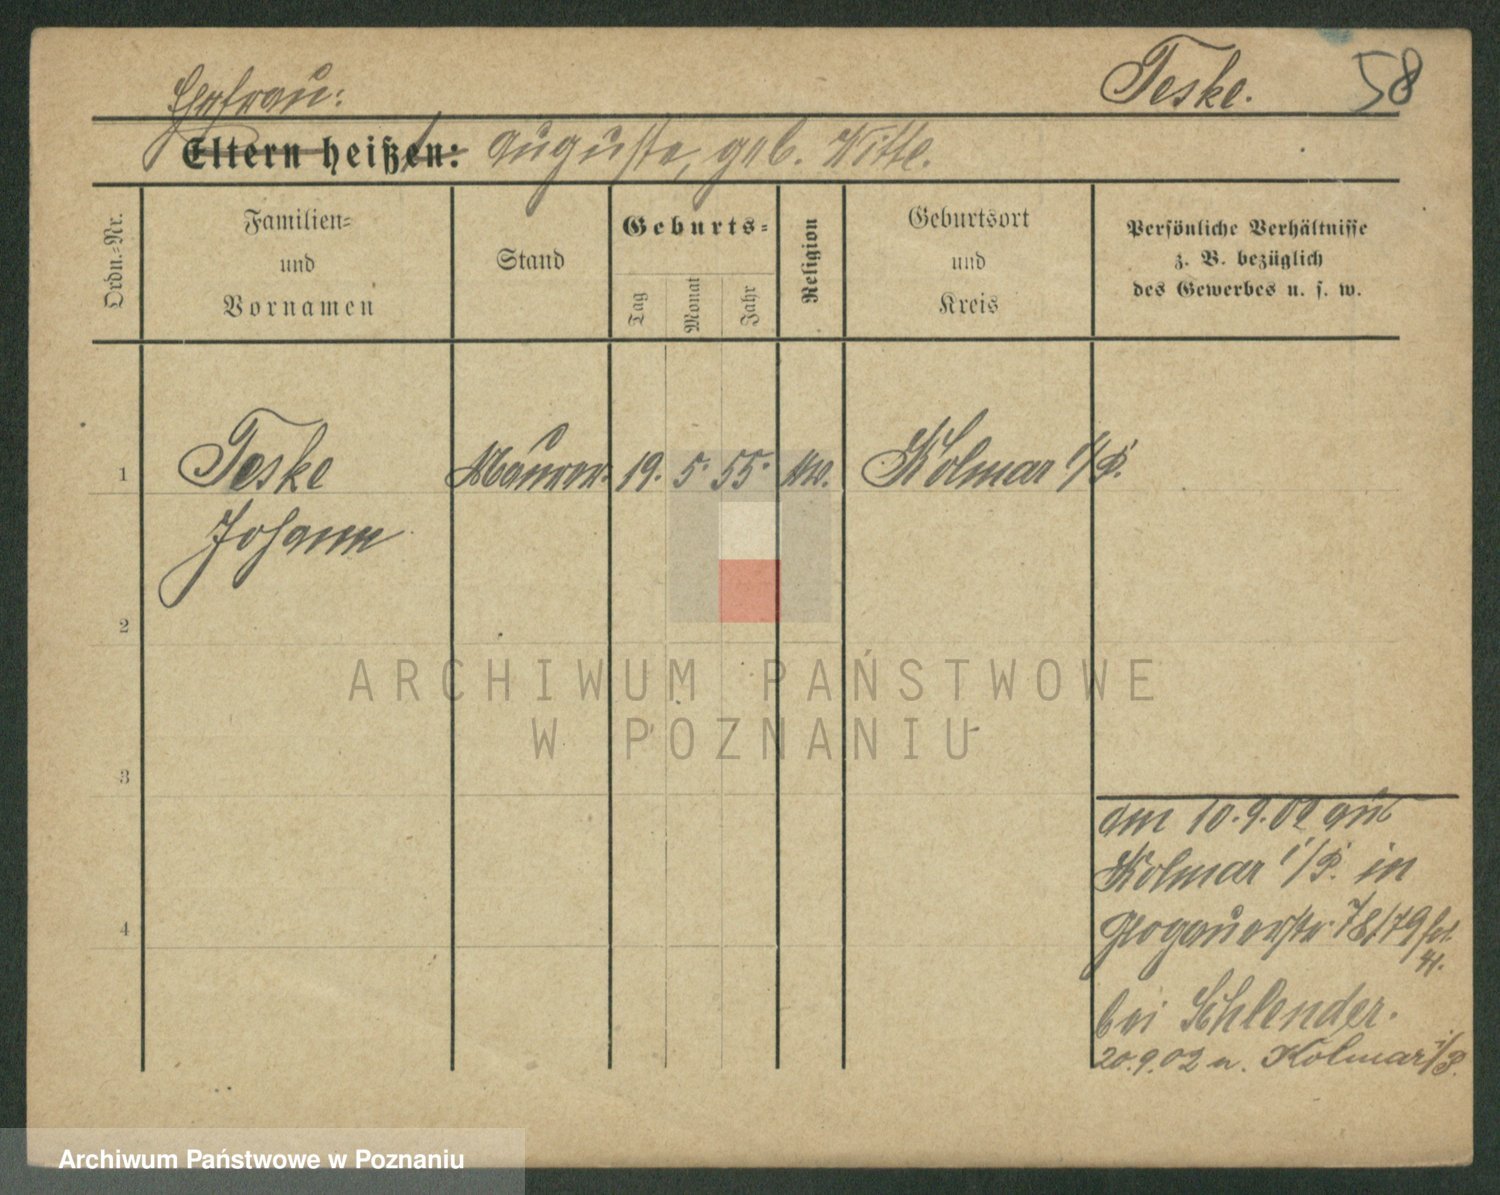 Teske. 58
Ehefrau:
Eltern heißen: Auguste, geb. Witte.
Ordn.-Nr.
Familien-
und
Vornamen
Stand
Geburts-
Tag
Monat
Jahr
Religion
Geburtsort
und
Kreis
Persönliche Verhältnisse
z. B. bezüglich
des Gewerbes u. s. w.
1 Teske Maurer. 19. 5. 55. Kolmar i/P.
Johann
2
3
4
am 10.9.02 aus
Kolmar i/P. in
Glogauerstr. 78/79
bei Schlender.
20.9.02 n. Kolmar i/P.
ARCHIWUM PAŃSTWOWE
W POZNANIU
Archiwum Państwowe w Poznaniu